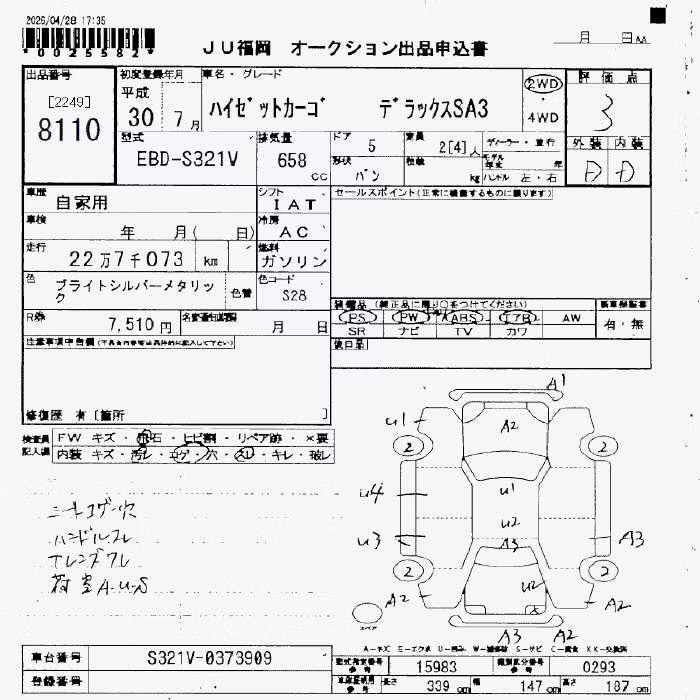 2026/04/28 17:35
*0025582*
JU福岡 オークション出品申込書
月 日
出品番号 初度登録年月 車名・グレード 2WD 評価点
[2249] 平成 ハイゼットカーゴ デラックスSA3 ・ 3
8110 30年7月 4WD
型式 排気量 ドア 5 定員 2[4]人 ディーラー・並行 外装 内装
EBD-S321V 658 cc 形状 バン 積載 kg モデル年式 年 D D
ハンドル 左・右
車歴 自家用 シフト IAT セールスポイント(正常に機能するものに限ります)
車検 年 月( 日) 冷房 AC
走行 22万7千073 km 燃料 ガソリン
色 ブライトシルバーメタリック 色替 色コード S28
装備品 (純正品に限り○をつけてください) 新車保証書
PS PW ABS エアB AW 有・無
SR ナビ TV カワ
R券 7,510円 名変期限 月 日
後日品
注意事項申告欄
修復歴 有 [箇所 ]
検査員記入欄 FW キズ・飛石・ヒビ割・リペア跡・×要
内装 キズ・汚レ・コゲ・穴・スレ・キレ・破レ
シートコゲ・穴
ハンドルスレ
荷室A.U.S
A1
U1 A2
2 2
U4 U1
U2
U3 A3 A3
2 2
A2 U2 A2
A3 A2
スペア
A-キズ E-エクボ U-凹み W-補修跡 S-サビ C-腐食 XX-交換済
車台番号 S321V-0373909 型式指定番号 参考 15983 類別区分番号 参考 0293
登録番号 車庫証明用 参考 長さ 339cm 幅 147cm 高さ 187cm